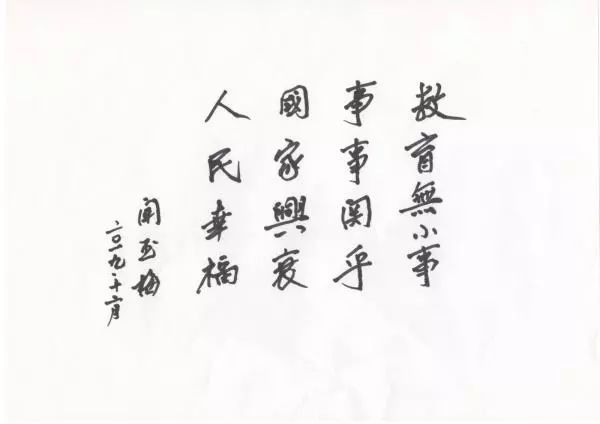 教育無小事
事事関乎
國家興衰
人民幸福
闻玉梅
二〇一九·十二月